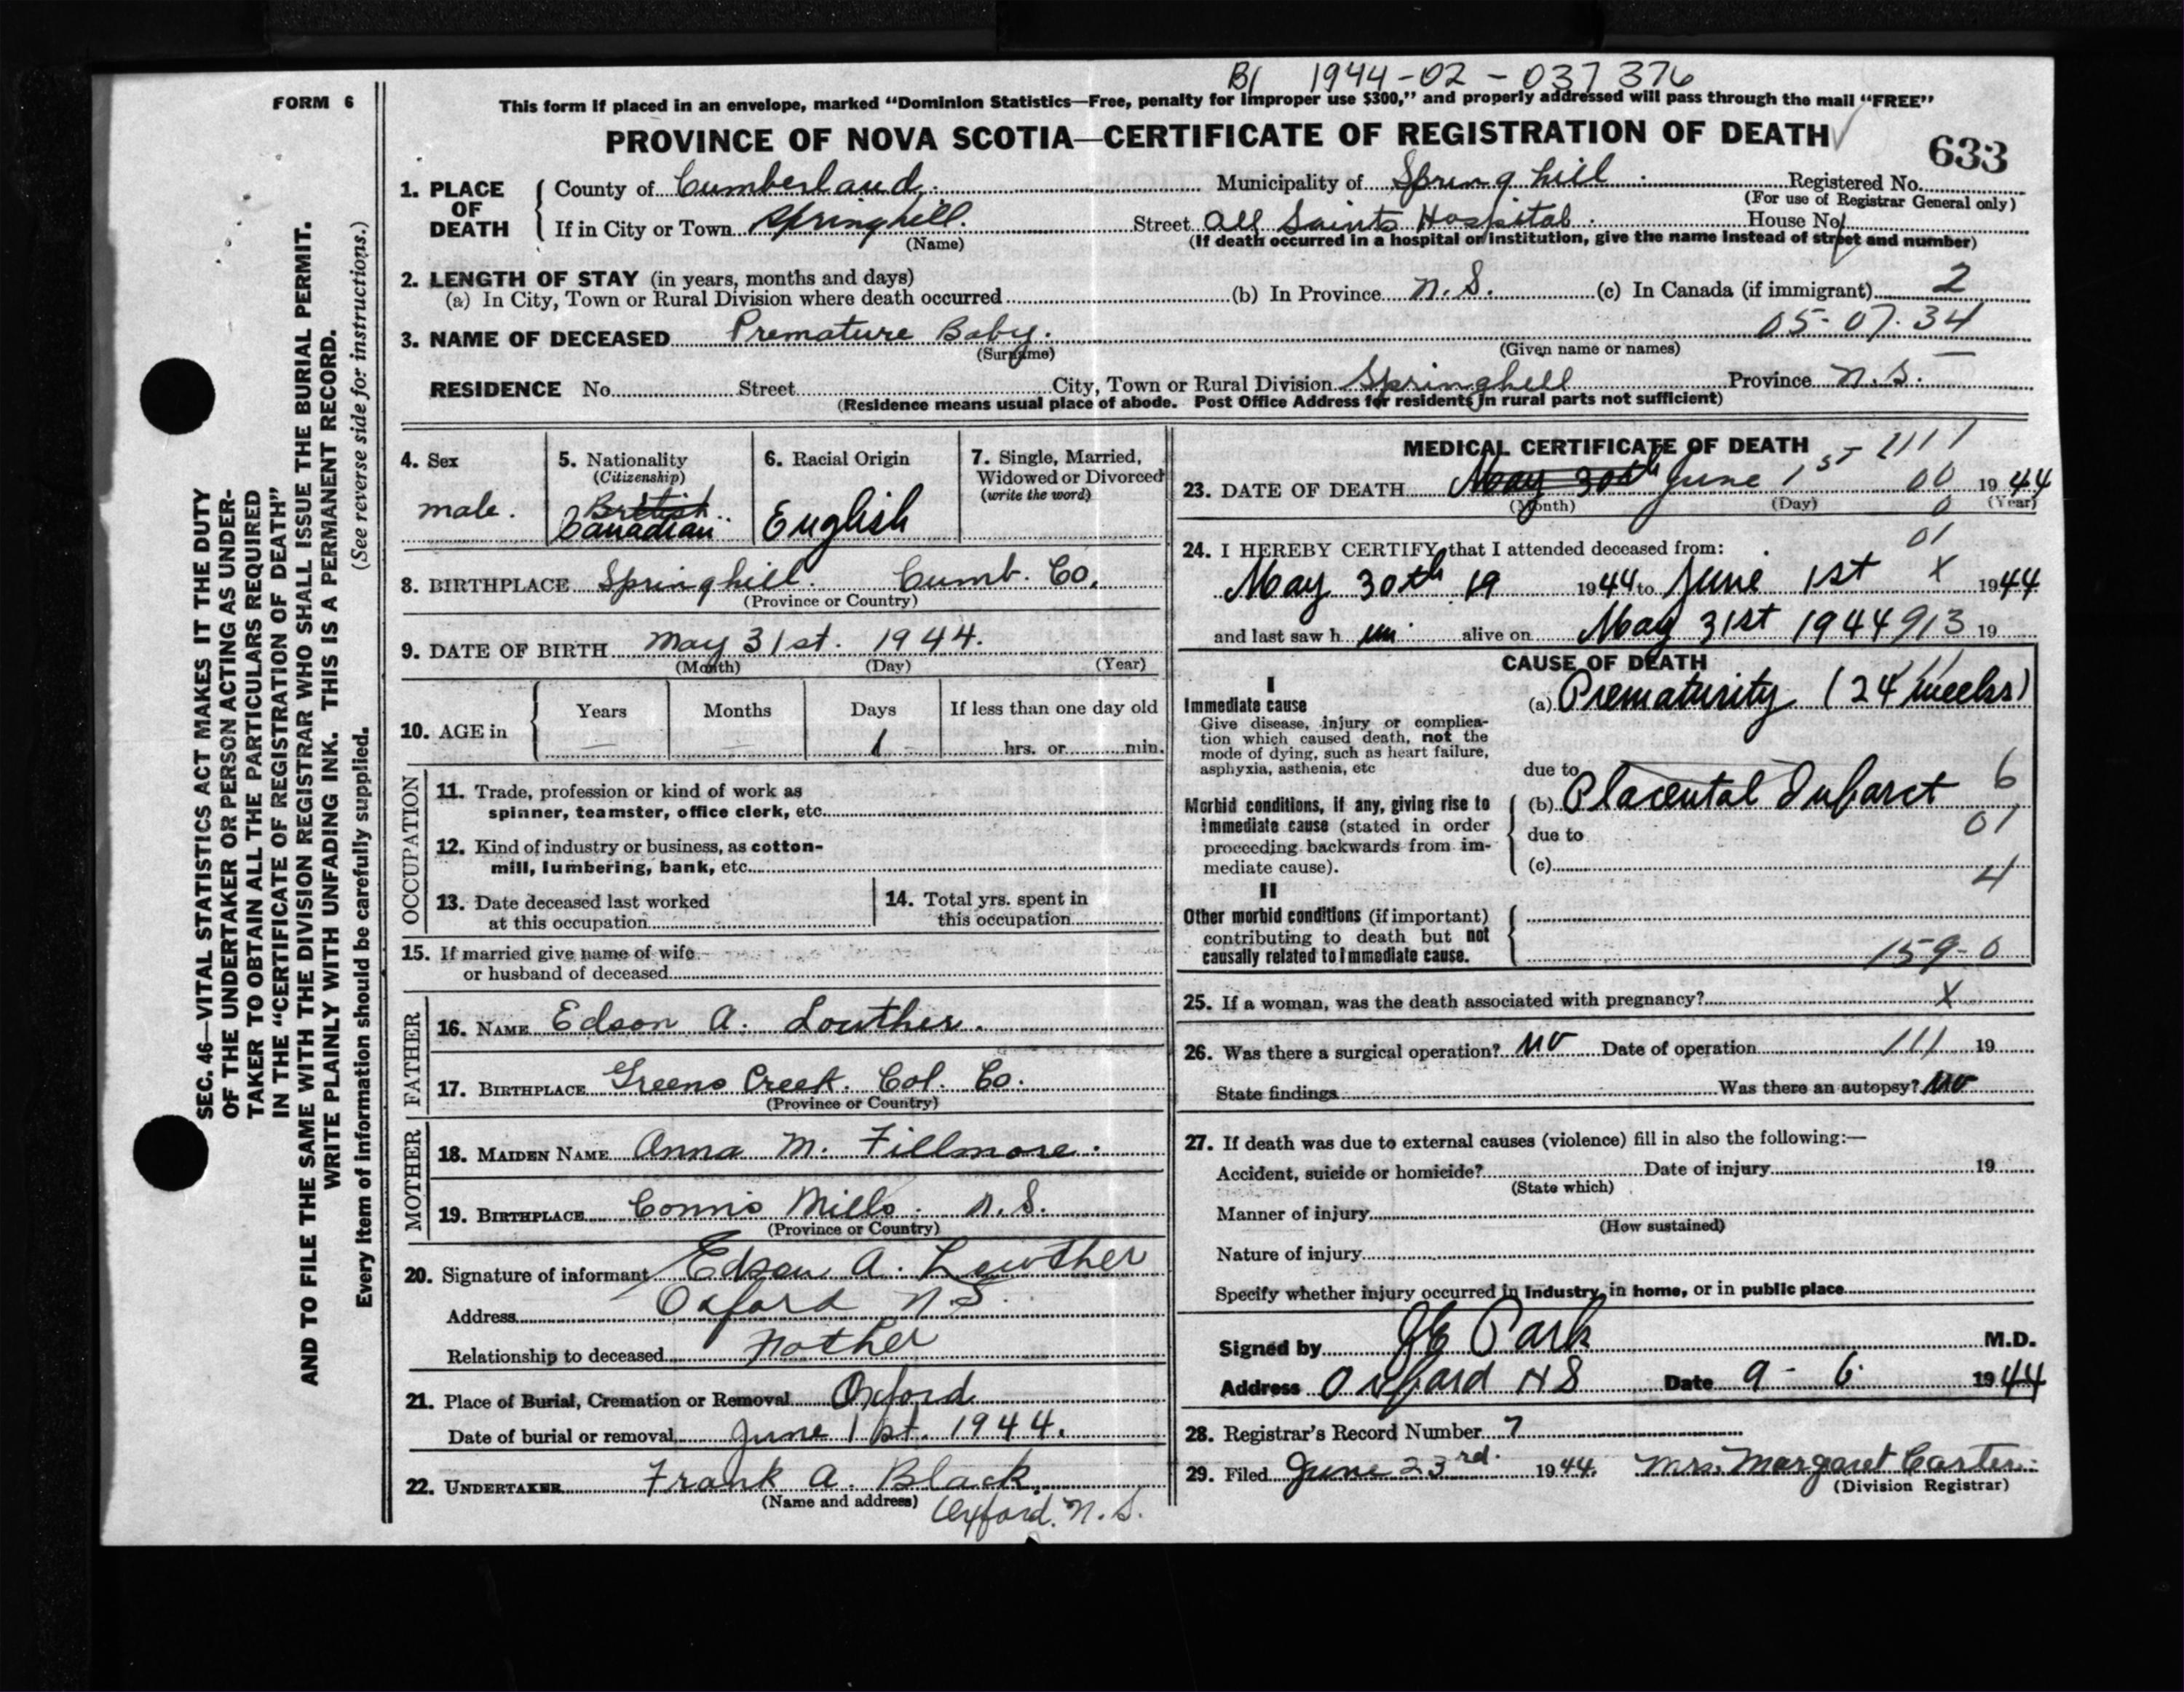 B/ 1944-02-037376
FORM 6
This form if placed in an envelope, marked "Dominion Statistics—Free, penalty for improper use $300," and properly addressed will pass through the mail "FREE"
PROVINCE OF NOVA SCOTIA—CERTIFICATE OF REGISTRATION OF DEATH
633
1. PLACE OF DEATH
County of Cumberland. Municipality of Springhill. Registered No.
(For use of Registrar General only)
If in City or Town Springhill. Street All Saints Hospital. House No.
(Name) (If death occurred in a hospital or institution, give the name instead of street and number)
2. LENGTH OF STAY (in years, months and days)
(a) In City, Town or Rural Division where death occurred (b) In Province N.S. (c) In Canada (if immigrant) 2
3. NAME OF DECEASED Premature Baby. 05-07.34
(Surname) (Given name or names)
RESIDENCE No. Street City, Town or Rural Division Springhill Province N.S.
(Residence means usual place of abode. Post Office Address for residents in rural parts not sufficient)
4. Sex
male.
5. Nationality
(Citizenship)
British
Canadian
6. Racial Origin
English
7. Single, Married,
Widowed or Divorced
(write the word)
8. BIRTHPLACE Springhill. Cumb. Co.
(Province or Country)
9. DATE OF BIRTH May 31st. 1944.
(Month) (Day) (Year)
10. AGE in
Years Months Days If less than one day old
— — 1 hrs. or min.
OCCUPATION
11. Trade, profession or kind of work as
spinner, teamster, office clerk, etc.
12. Kind of industry or business, as cotton-
mill, lumbering, bank, etc.
13. Date deceased last worked
at this occupation
14. Total yrs. spent in
this occupation
15. If married give name of wife
or husband of deceased
FATHER
16. NAME Edson A. Louther.
17. BIRTHPLACE Greens Creek. Col. Co.
(Province or Country)
MOTHER
18. MAIDEN NAME Anna M. Fillmore.
19. BIRTHPLACE Conns Mills. N.S.
(Province or Country)
20. Signature of informant Edson A. Lowther
Address Oxford N.S.
Relationship to deceased Father
21. Place of Burial, Cremation or Removal Oxford
Date of burial or removal June 1st. 1944.
22. UNDERTAKER Frank A. Black
(Name and address) Oxford. N.S.
MEDICAL CERTIFICATE OF DEATH
1111
23. DATE OF DEATH May 30th June 1st 00 1944
(Month) (Day) 0 (Year)
01
24. I HEREBY CERTIFY that I attended deceased from:
May 30th 19 1944 to June 1st X 1944
and last saw h im alive on May 31st 1944 913 19
CAUSE OF DEATH
I
Immediate cause
Give disease, injury or complica-
tion which caused death, not the
mode of dying, such as heart failure,
asphyxia, asthenia, etc
(a) Prematurity (24 weeks)
due to
Morbid conditions, if any, giving rise to
immediate cause (stated in order
proceeding backwards from im-
mediate cause).
(b) Placental Infarct 6
due to 01
(c) 4
II
Other morbid conditions (if important)
contributing to death but not
causally related to immediate cause.
159-0
25. If a woman, was the death associated with pregnancy? X
26. Was there a surgical operation? no Date of operation 111 19
State findings Was there an autopsy? no
27. If death was due to external causes (violence) fill in also the following:—
Accident, suicide or homicide? Date of injury 19
(State which)
Manner of injury
(How sustained)
Nature of injury
Specify whether injury occurred in industry, in home, or in public place
Signed by JE Park M.D.
Address Oxford NS Date 9-6 1944
28. Registrar's Record Number 7
29. Filed June 23rd. 1944. Mrs. Margaret Carter.
(Division Registrar)
SEC. 46—VITAL STATISTICS ACT MAKES IT THE DUTY
OF THE UNDERTAKER OR PERSON ACTING AS UNDER-
TAKER TO OBTAIN ALL THE PARTICULARS REQUIRED
IN THE "CERTIFICATE OF REGISTRATION OF DEATH"
AND TO FILE THE SAME WITH THE DIVISION REGISTRAR WHO SHALL ISSUE THE BURIAL PERMIT.
WRITE PLAINLY WITH UNFADING INK. THIS IS A PERMANENT RECORD.
Every item of information should be carefully supplied. (See reverse side for instructions.)